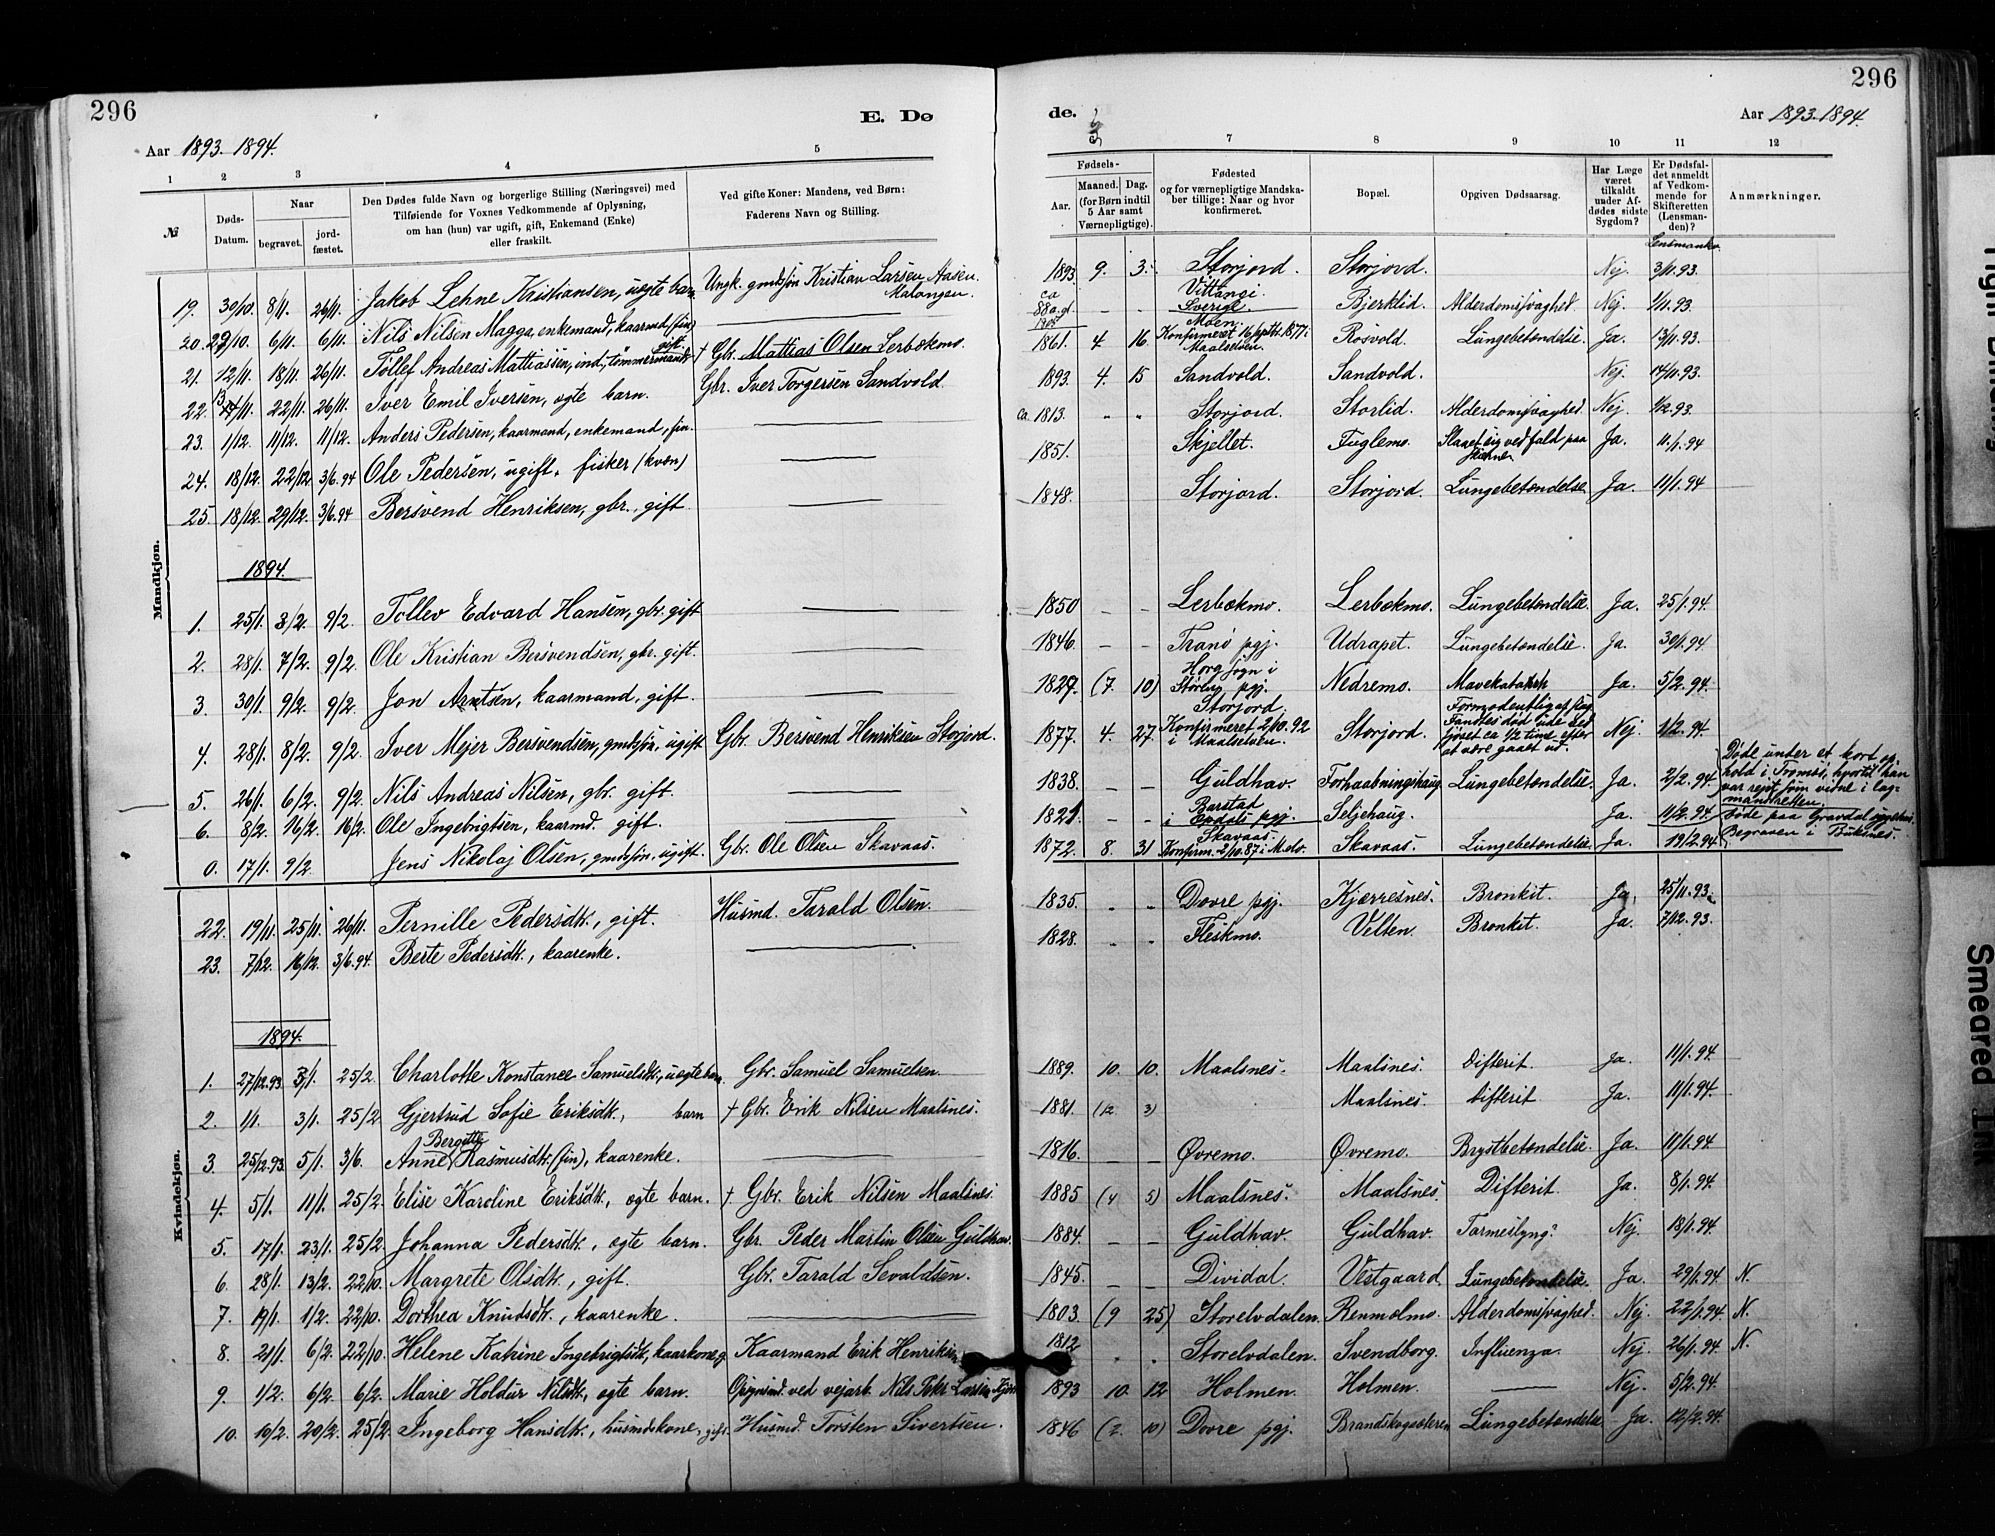 296
E. Dø
de.
296
Aar 1893. 1894.
Aar 1893. 1894.
1 2 3 4 5
6 7 8 9 10 11 12
№
Døds-Datum.
Naar
begravet.
jord-fæstet.
Den Dødes fulde Navn og borgerlige Stilling (Næringsvei) med
Tilføiende for Voxnes Vedkommende af Oplysning,
om han (hun) var ugift, gift, Enkemand (Enke)
eller fraskilt.
Ved gifte Koner: Mandens, ved Børn:
Faderens Navn og Stilling.
Fødsels-
Aar.
Maaned. Dag.
(for Børn indtil
5 Aar samt
Værnepligtige).
Fødested
og for værnepligtige Mandska-
ber tillige: Naar og hvor
konfirmeret.
Bopæl.
Opgiven Dødsaarsag.
Har Læge
været
tilkaldt
under Af-
dødes sidste
Sygdom?
Er Dødsfal-
det anmeldt
af Vedkom-
mende for
Skifteretten
(Lensman-
den)?
Anmærkninger.
Mandkjøn.
19. 30/10. 8/11. 26/11. Jakob Lehne Kristiansen, uægte barn Ungk. gmdsøn Kristian Larsen Aasen. Malangen. 1893 9. 3. Storjord. Storjord. Nej. 3/11.93.
20. 29/10. 6/11. 6/11. Nils Nilsen Magga, enkemand, kaarmd (fin) ca 88 a. gl. Vittangi. Sverige. Bjerklid. Alderdomssvaghed. Nej. 1/11.93.
21. 12/11. 18/11. 26/11. Tollef Andreas Mattiassen, ind., tømmermand gift. † Gbr. Mattias Olsen Lerbækmo. 1861. 4. 16 Moen. Konfirmeret 16 septbr. 1877 i Maalselven. Rosvold. Lungebetændelse. Ja. 13/11.93.
22. 13/11. 22/11. 26/11. Iver Emil Iversen, ægte barn. Gbr. Iver Torgersen Sandvold. 1893. 4. 15 Sandvold. Sandvold. Nej. 14/11.93.
23. 1/12. 11/12. 11/12. Anders Pedersen, kaarmand, enkemand, fin. ca. 1813. " " Storjord. Storlid. Alderdomssvaghed. Nej. 1/12.93.
24. 18/12. 22/12 3/6.94 Ole Pedersen, ugift, fisker (kvæn) 1851. Skjellet. Fuglemo. Slaaet sig ved fald paa skiene Ja. 11/1.94
25. 18/12. 29/12. 3/6.94 Bersvend Henriksen, gbr., gift. 1848. Storjord. Storjord. Lungebetændelse. Ja. 11/1.94
1894.
1. 25/1. 3/2. 9/2. Tollev Edvard Hansen, gbr. gift 1850 – – Lerbækmo. Lerbækmo. Lungebetændelse. Ja. 25/1.94.
2. 28/1. 7/2. 9/2. Ole Kristian Bersvendsen, gbr. gift. 1846. – – Tranø pgj. Udrapet. Lungebetændelse. Ja. 30/1.94.
3. 30/1. 9/2. 9/2. Jon Arntsen, kaarmand, gift. 1827. (7. 10) Horg sogn i Støren pgj. Nedremo. Mavekatarrh Ja. 5/2.94.
4. 28/1. 8/2. 9/2. Iver Mejer Bersvendsen, gmdsøn. ugift Gbr. Bersvend Henriksen Storjord. 1877. 4. 27 Storjord. Konfirmeret 2/10.92 i Maalselven. Storjord. Fandtes død ude ca 1/2 time efter at være gaaet ud. Nej. 1/2.94.
5. 26/1. 6/2. 9/2. Nils Andreas Nilsen, gbr. gift. 1838. – – Guldhav. Forhaabningshaug Lungebetændelse. Ja. 2/2.94. Døde under et kort ophold i Tromsø, hvortil han var rejst som vidne i lagmandsretten.
6. 8/2. 16/2. 16/2. Ole Ingebrigtsen, kaarmd. gift. 1821. – – Barstad Seljehaug. Ja. 11/2.94.
0. 17/1. 9/2. Jens Nikolaj Olsen, gmdsøn, ugift. Gbr. Ole Olsen Skavaas. 1872. 8. 31 Skavaas. Konfirm. 2/10.87 i Malv. Skavaas. Lungebetændelse. Ja. 19/2.94 Døde paa Gravdal sygehus. Begraven i Buksnes.
Kvindekjøn.
22. 19/11. 25/11. 26/11. Pernille Pedersdtr., gift. Husmd. Tarald Olsen. 1835. " " Dovre pgj. Kjærresnes. Bronkit. Ja. 25/11.93.
23. 7/12. 16/12. 3/6.94. Berte Pedersdtr., kaarenke. 1828. " " Fleskmo. Velten. Bronkit. Ja. 7/12.93.
1894.
1. 27/12.93 3/1. 25/2. Charlotte Konstance Samuelsdtr., uægte barn. Gbr. Samuel Samuelsen. 1889. 10. 10. Maalsnes. Maalsnes. Difterit. Ja. 11/1.94.
2. 1/1. 3/1. 25/2 Gjertrud Sofie Eriksdtr., barn † Gbr. Erik Nilsen Maalsnes. 1881. (12 3) Maalsnes. Difterit Ja. 11/1.94.
3. 25/12.93. 5/1. 3/6. Anne Bergitte Rasmusdtr. (fin), kaarenke. 1816. – – Øvremo. Øvremo. Brystbetændelse. Ja. 11/1.94.
4. 5/1. 11/1. 25/2. Elise Karoline Eriksdtr., ægte barn. † Gbr. Erik Nilsen Maalsnes. 1885 (4 5) Maalsnes. Maalsnes. Difterit. Ja. 8/1.94.
5. 17/1. 23/1. 25/2. Johanna Pedersdtr., ægte barn. Gbr. Peder Martin Olsen Guldhav. 1884. – – Guldhav. Guldhav. Tarmeslyng? Nej. 18/1.94.
6. 28/1. 13/2. 22/10. Margrete Olsdtr., gift. Gbr. Tarald Sevaldsen. 1845. – – Dividal. Vestgaard. Lungebetændelse. Ja. 29/1.94. N.
7. 19/1. 1/2. 22/10. Dorthea Knudsdtr., kaarenke. 1803. (9 25) Storelvdalen. Renmælmo. Alderdomssvaghed. Nej. 22/1.94. N.
8. 21/1. 6/2. 22/10. Helene Katrine Ingebrigtsdtr., kaarkone, g. Kaarmand Erik Henriksen 1812 " " Storelvdalen. Svendborg. Influenza. Nej. 26/1.94. N.
9. 1/2. 6/2. 6/2. Marie Holdur Nilsdtr., ægte barn. Opsynsmd. ved vejarb. Nils Petr. Larsen 1893 10. 12 Holmen. Holmen. Nej. 5/2.94.
10. 10/2. 20/2. 25/2. Ingeborg Hansdtr., husmdskone, gift. Husmd. Torsten Sivertsen. 1846 (2. 10) Dovre pgj. Lungebetændelse Ja. 12/2.94.
Tight Binding
Smeared INK